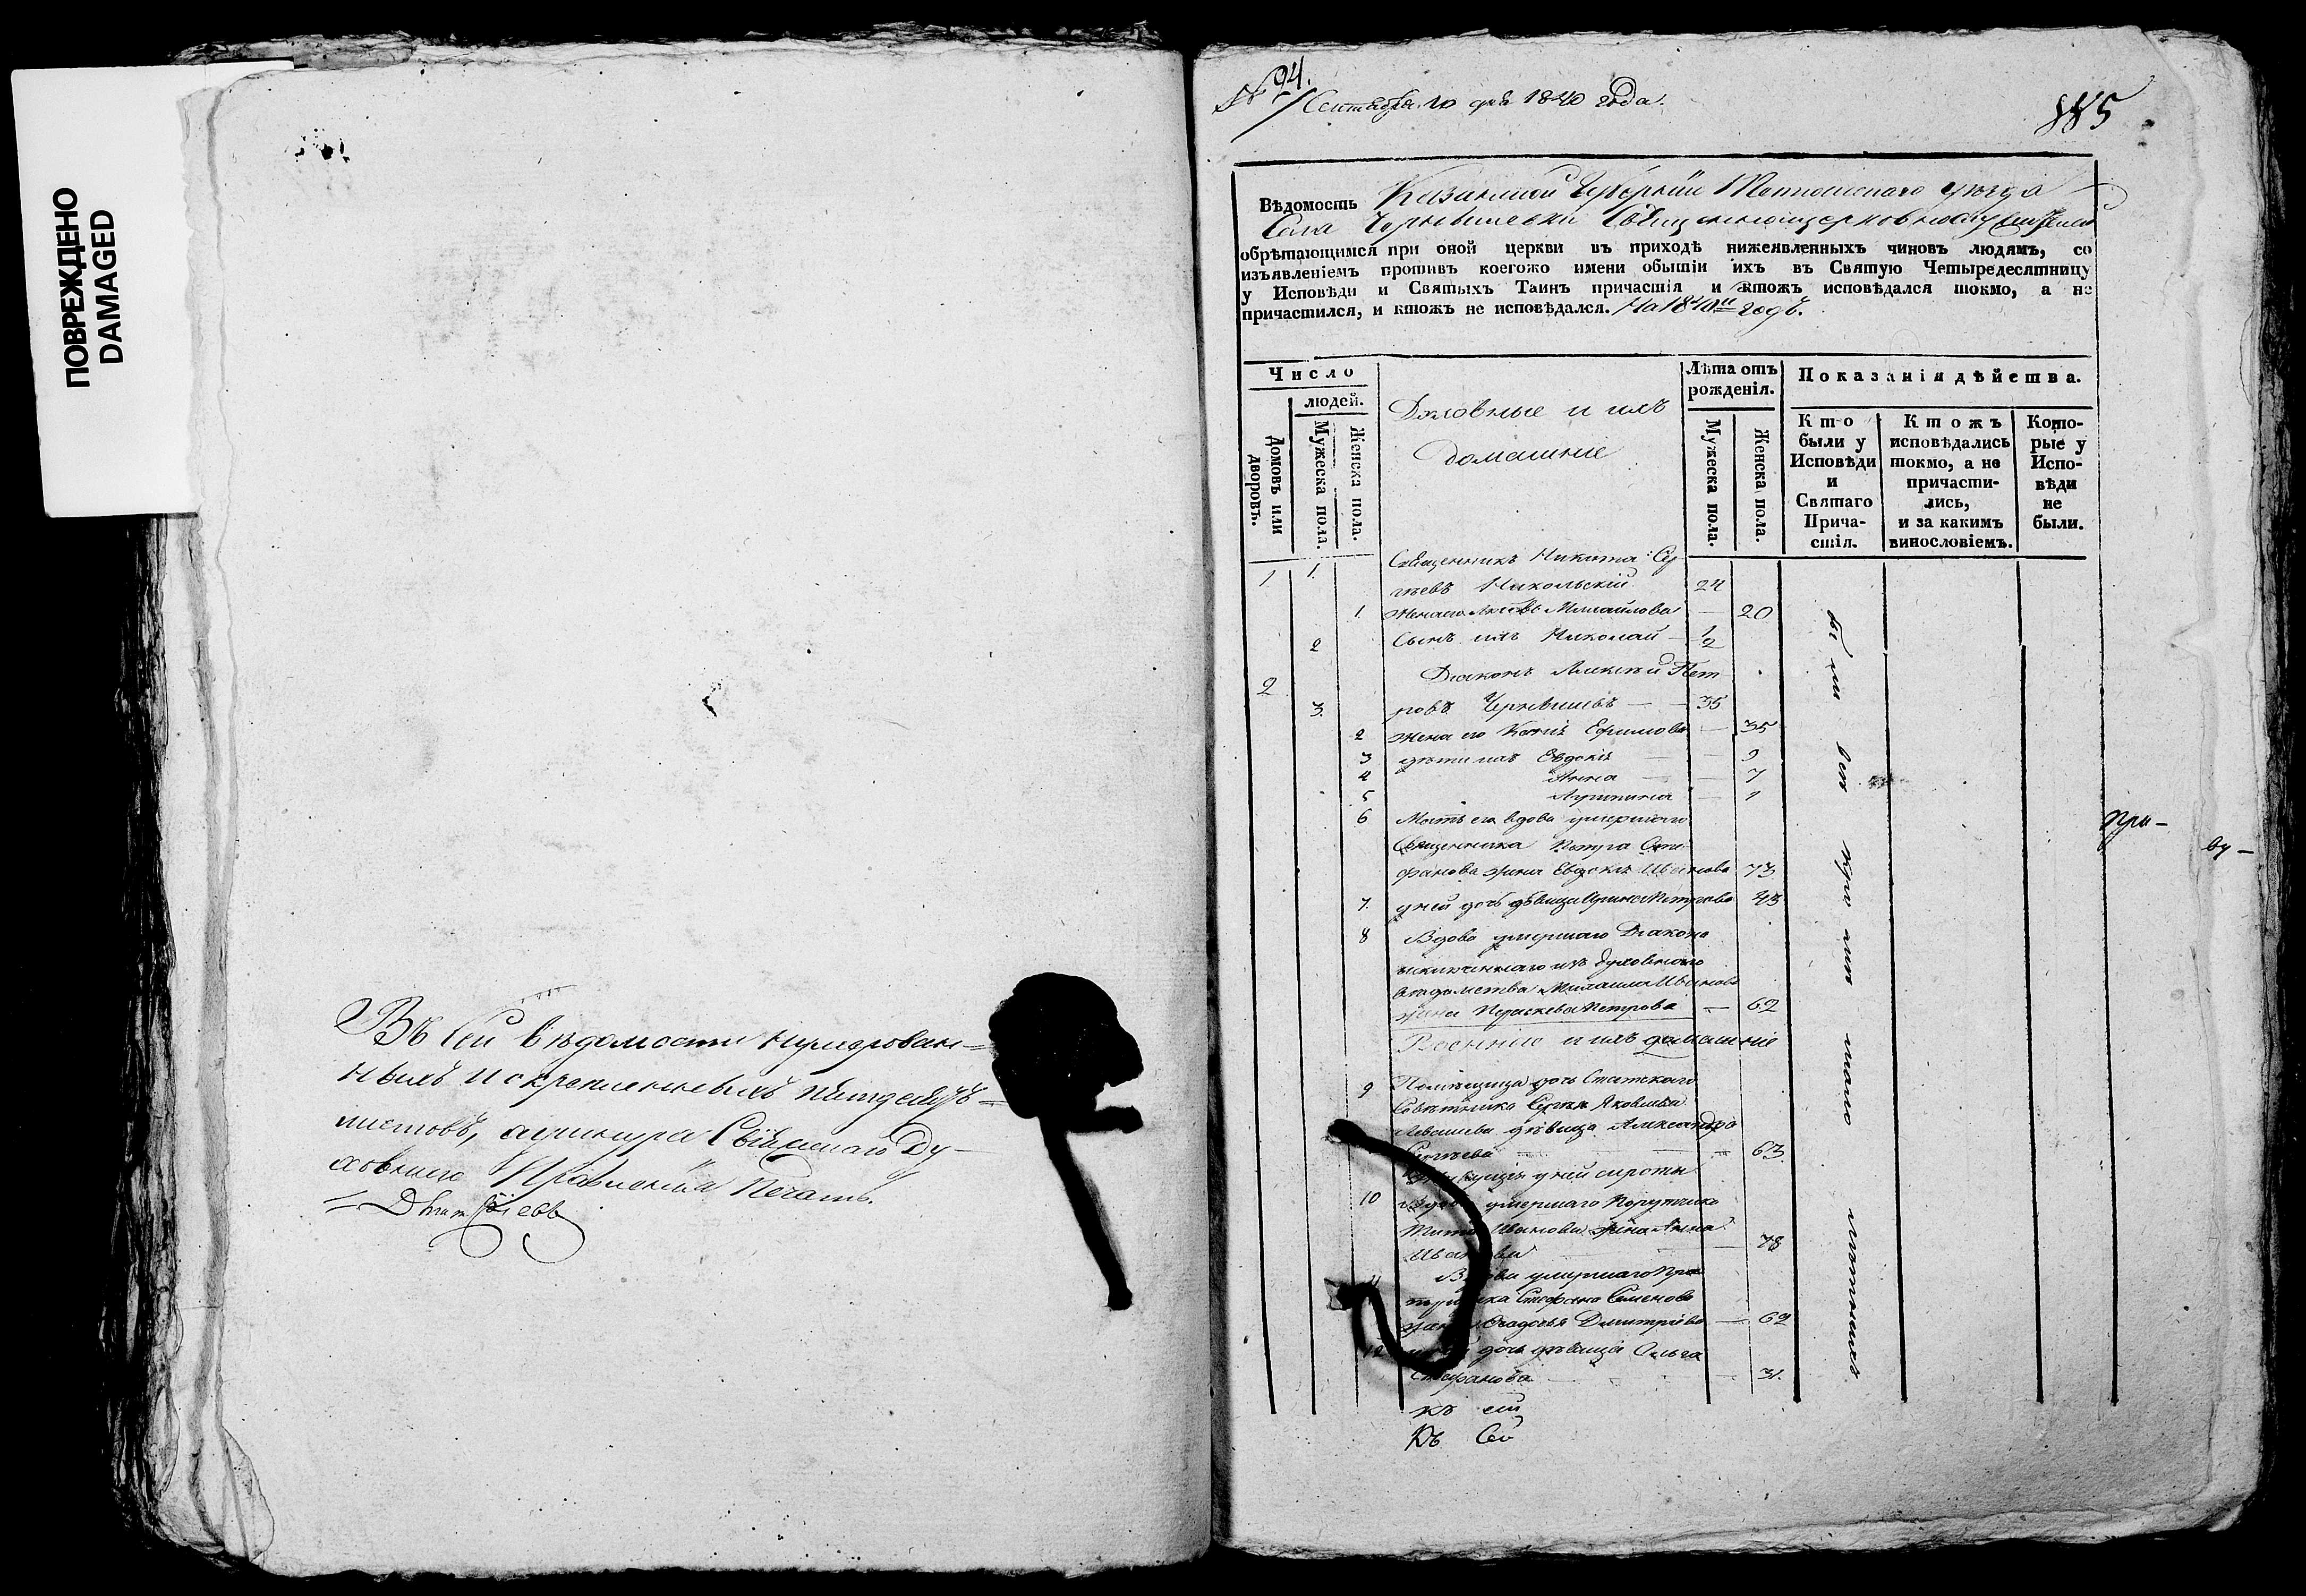 ПОВРЕЖДЕНО
DAMAGED
Въ сей вѣдомости нумерован=
ныхъ и скрѣпленныхъ пятдесятъ=
листовъ, а у шнура Свіяжскаго Ду-
ховнаго Правленія Печать.
№ 94.
Сентября 10 дня 1840 года.
885
Вѣдомость Казанской Губерніи Тетюшскаго уѣзда
Села Чернышевки Священноцерковнослужителей
обрѣтающимся при оной церкви въ приходѣ нижеявленныхъ чиновъ людямъ, со
изъявленіемъ противъ коегожо имени обытіи ихъ въ Святую Четыредесятницу
у Исповѣди и Святыхъ Таинъ причастія и ктожъ исповѣдался токмо, а не
причастился, и ктожъ не исповѣдался. На 1840й годъ.
Число
людей.
Домовъ или дворовъ.
Мужеска пола.
Женска пола.
Духовные и ихъ
домашніе
Лѣта отъ
рожденія.
Мужеска пола.
Женска пола.
Показанія дѣйства.
Кто
были у
Исповѣди
и
Святаго
Прича-
стія.
Ктожъ
исповѣдались
токмо, а не
причасти-
лись,
и за какимъ
винословіемъ.
Кото-
рые у
Испо-
вѣди
не
были.
1 1. Священникъ Никита Сер
гѣевъ Никольскій 24
1. Жена его Михайлова — 20
2 Сынъ ихъ Николай — 1/2
2 Діаконъ Алексѣй Пет
3. ровъ Чернышевъ — — 35
2 Жена его Ефимова — 35
3 дѣти ихъ Евдокія — — 9
4 Анна — — 7
5 — 1
6 Мать его вдова умершаго
Священника Петра Сте
фанова жена Евдокія Иванова 73
7. у ней дочь дѣвица Ирина Петрова 43
8 Вдова умершаго Діакона
исключеннаго изъ духовнаго
вѣдомства Михаила Иванова
жена Параскева Петрова — 62
Военные и ихъ домашніе
9 Помѣщица дочь Статскаго
Совѣтника Сергѣя Яковлева
Левашева дѣвица Александра
Сергѣева — 63.
у ней сироты
10 вдова умершаго Порутчика
Иванова жена Анна
Иванова — 78
11 Вдова умершаго
Стефана Семенова
жена Димитріева — 62
12 у ней дочь дѣвица Ольга
Стефанова — — 31.
къ сей
Къ Сей
при-
ву-